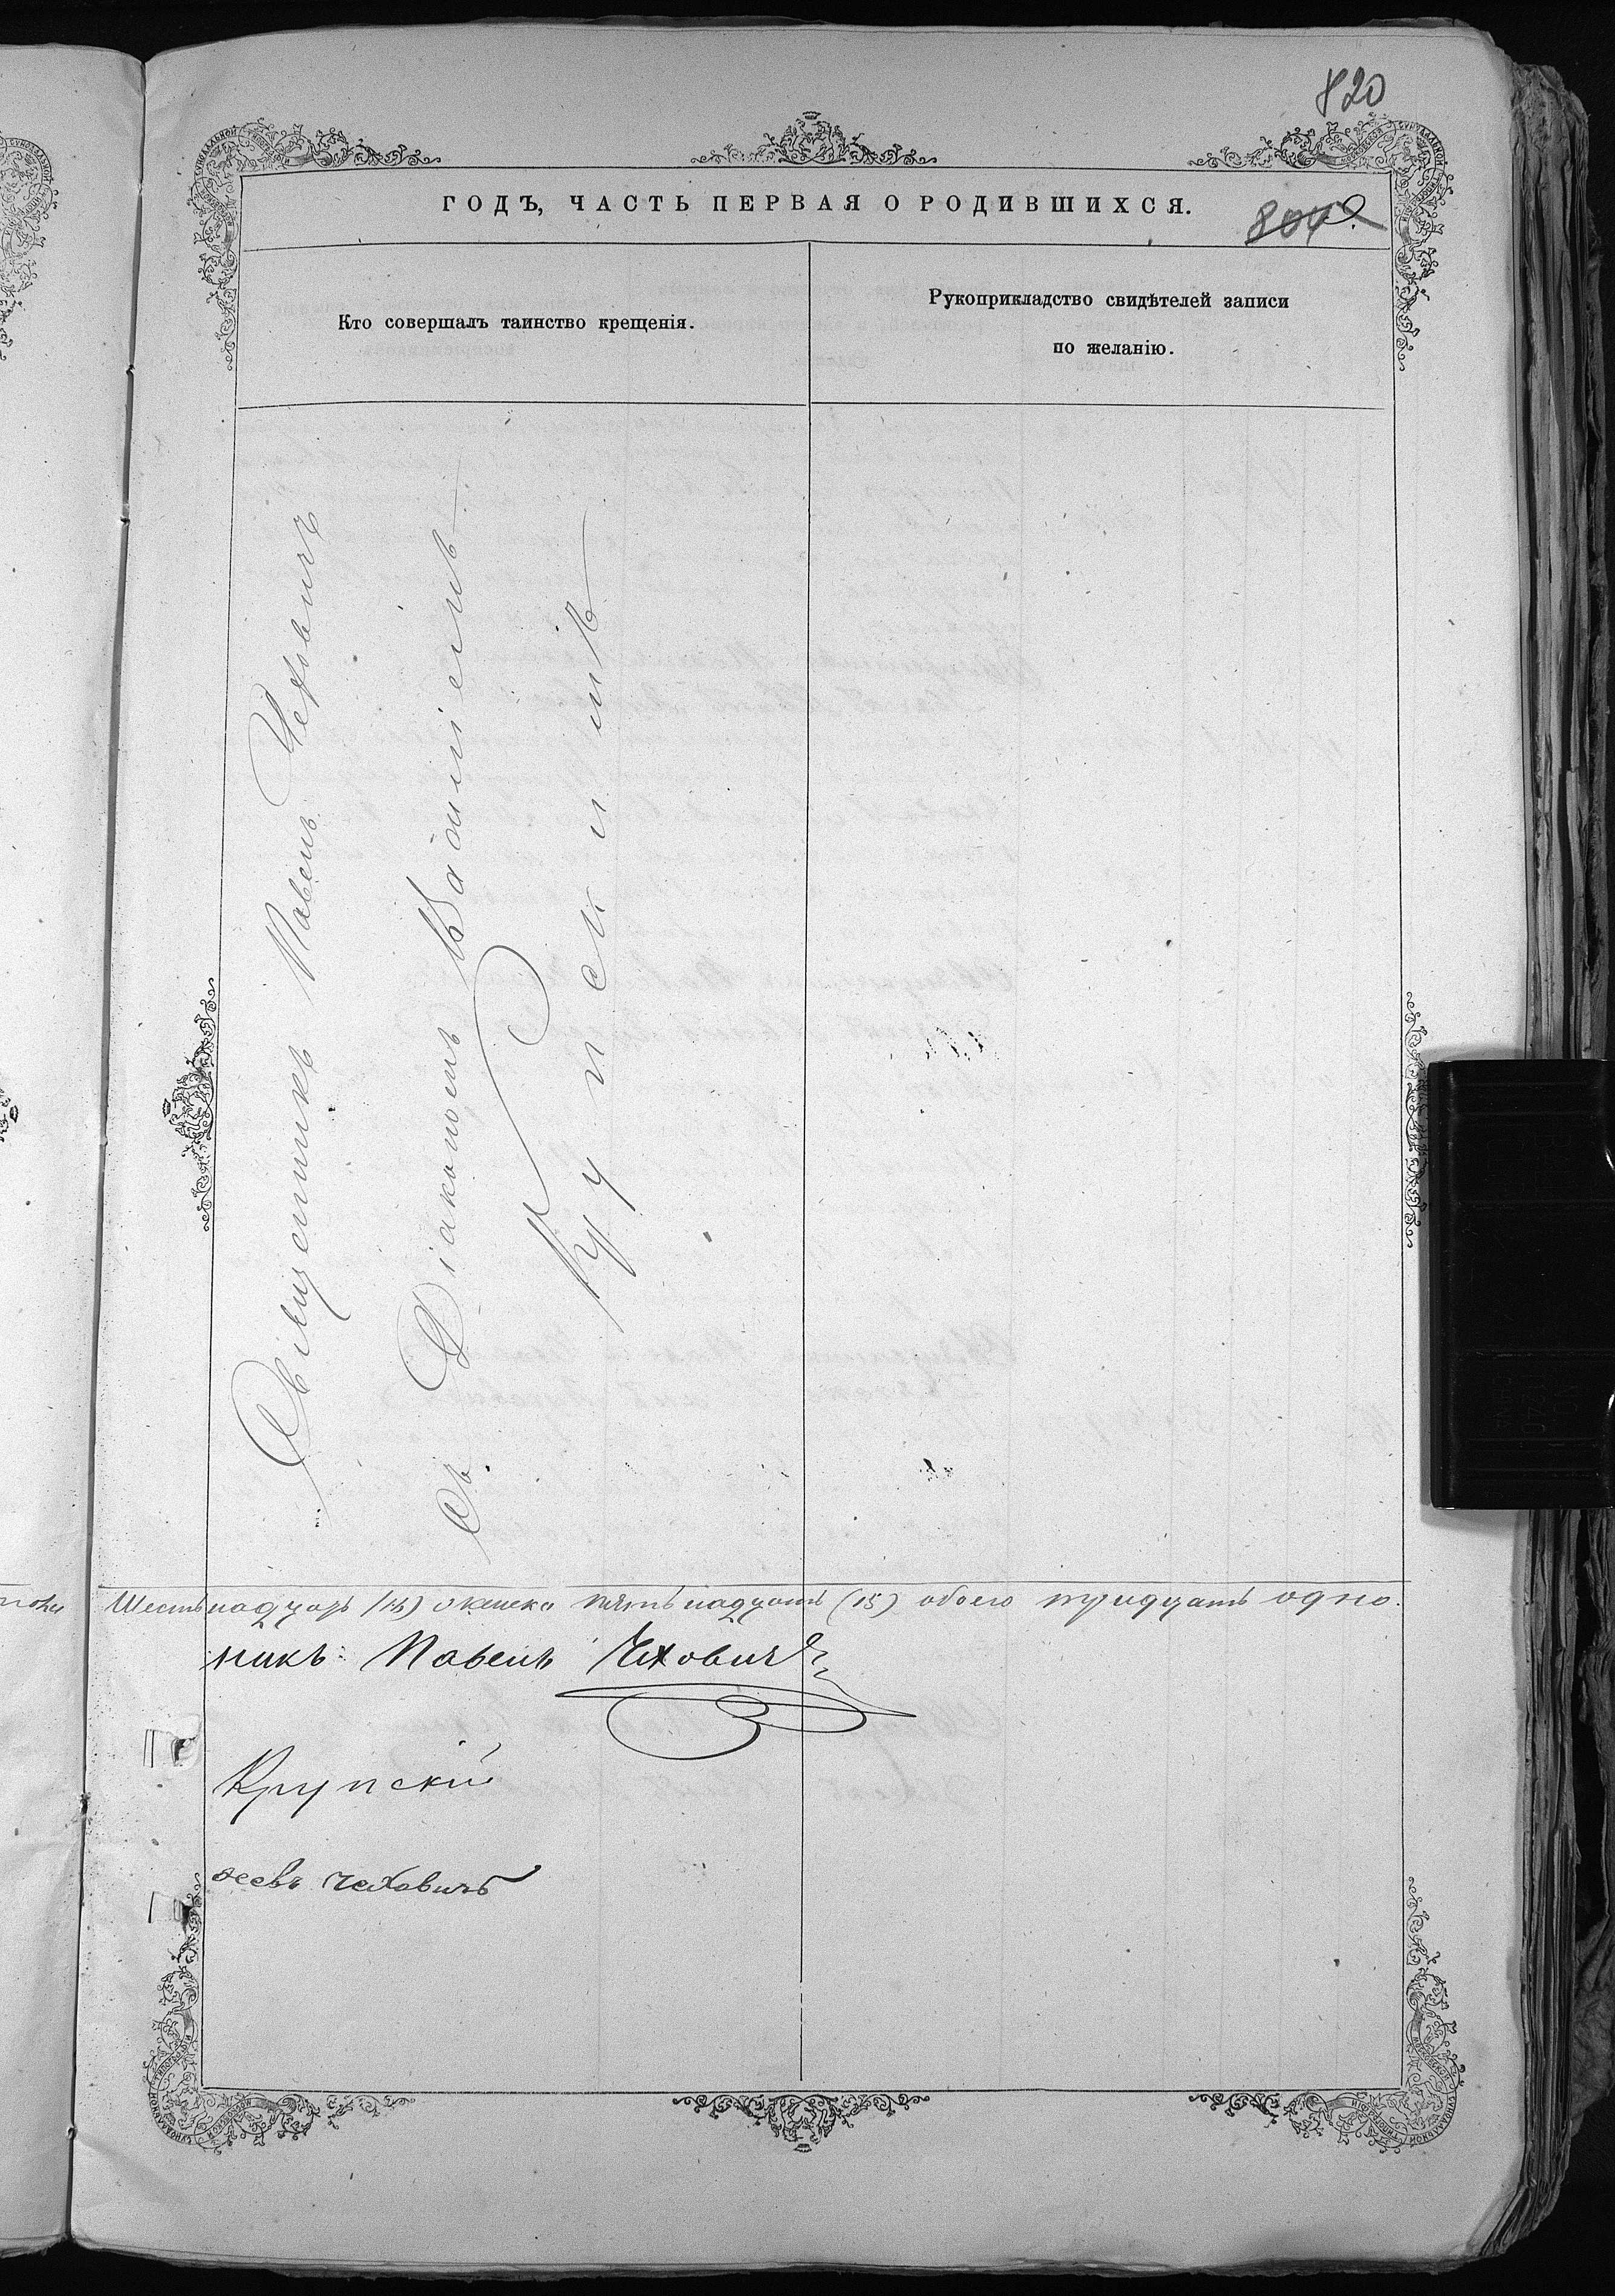 820
ГОДЪ, ЧАСТЬ ПЕРВАЯ О РОДИВШИХСЯ.
804
Кто совершалъ таинство крещенія.
Рукоприкладство свидѣтелей записи
по желанію.
Священникъ Павелъ Чеховичъ
съ Діакономъ Василіемъ
Крупскимъ
Шестьнадцать (16) женска пятьнадцать (15) обоего тридцать одно.
никъ Павелъ Чеховичъ
Крупскій
Чеховичъ